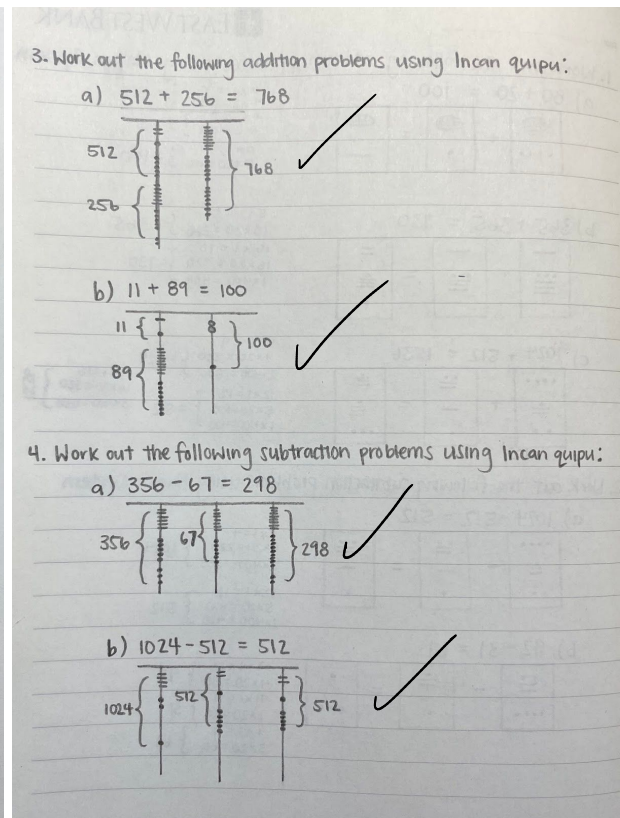 3. Work out the following addition problems using Incan quipu:
a) 512 + 256 = 768
512
768
256
b) 11 + 89 = 100
11
8
100
89
4. Work out the following subtraction problems using Incan quipu:
a) 356 - 67 = 298
356
67
298
b) 1024 - 512 = 512
1024
512
512